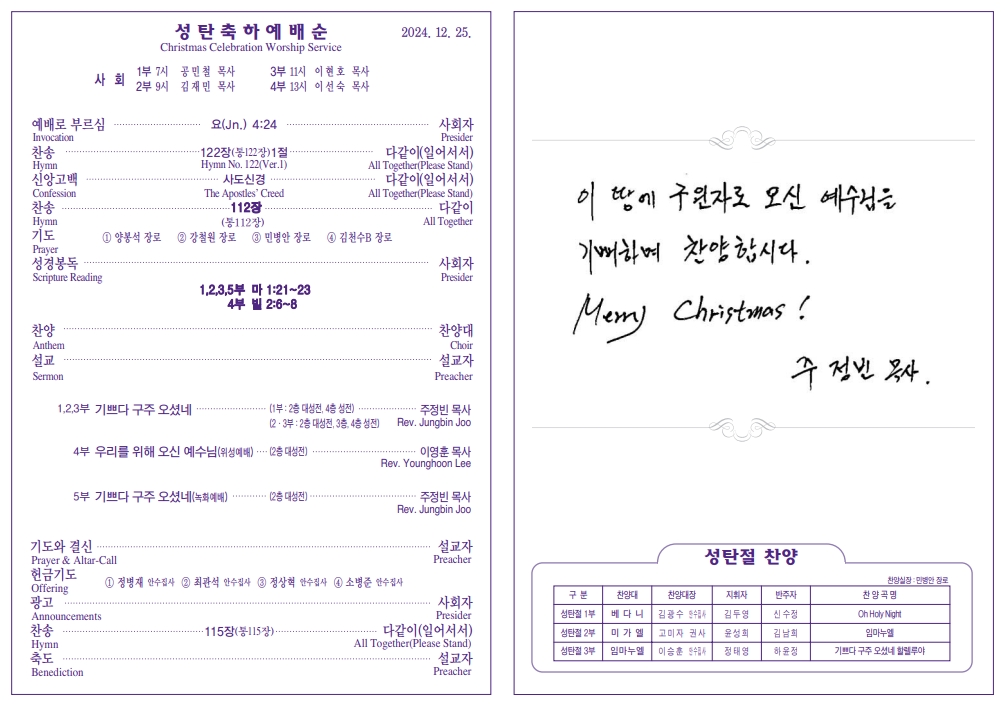 성탄축하예배순
2024. 12. 25.
Christmas Celebration Worship Service
사 회
1부 7시 공민철 목사 3부 11시 이현호 목사
2부 9시 김재민 목사 4부 13시 이선숙 목사
예배로 부르심 요(Jn.) 4:24 사회자
Invocation Presider
찬송 122장(통122장)1절 다같이(일어서서)
Hymn Hymn No. 122(Ver.1) All Together(Please Stand)
신앙고백 사도신경 다같이(일어서서)
Confession The Apostles' Creed All Together(Please Stand)
찬송 112장 다같이
Hymn (통112장) All Together
기도 ① 양봉석 장로 ② 강철원 장로 ③ 민병안 장로 ④ 김천수B 장로
Prayer
성경봉독 사회자
Scripture Reading Presider
1,2,3,5부 마 1:21~23
4부 빌 2:6~8
찬양 찬양대
Anthem Choir
설교 설교자
Sermon Preacher
1,2,3부 기쁘다 구주 오셨네 (1부 : 2층 대성전, 4층 성전) 주정빈 목사
(2 · 3부 : 2층 대성전, 3층, 4층 성전) Rev. Jungbin Joo
4부 우리를 위해 오신 예수님(위성예배) (2층 대성전) 이영훈 목사
Rev. Younghoon Lee
5부 기쁘다 구주 오셨네(녹화예배) (2층 대성전) 주정빈 목사
Rev. Jungbin Joo
기도와 결신 설교자
Prayer & Altar-Call Preacher
헌금기도 ① 정병재 안수집사 ② 최관석 안수집사 ③ 정상혁 안수집사 ④ 소병준 안수집사
Offering
광고 사회자
Announcements Presider
찬송 115장(통115장) 다같이(일어서서)
Hymn All Together(Please Stand)
축도 설교자
Benediction Preacher
이 땅에 구원자로 오신 예수님을
기뻐하며 찬양합시다.
Merry Christmas !
주정빈 목사.
성탄절 찬양
찬양실장 : 민병안 장로
구 분 찬양대 찬양대장 지휘자 반주자 찬 양 곡 명
성탄절 1부 베 다 니 김광수 안수집사 김두영 신수정 Oh Holy Night
성탄절 2부 미 가 엘 고미자 권사 윤성희 김남희 임마누엘
성탄절 3부 임마누엘 이승훈 안수집사 정태영 하윤정 기쁘다 구주 오셨네 할렐루야